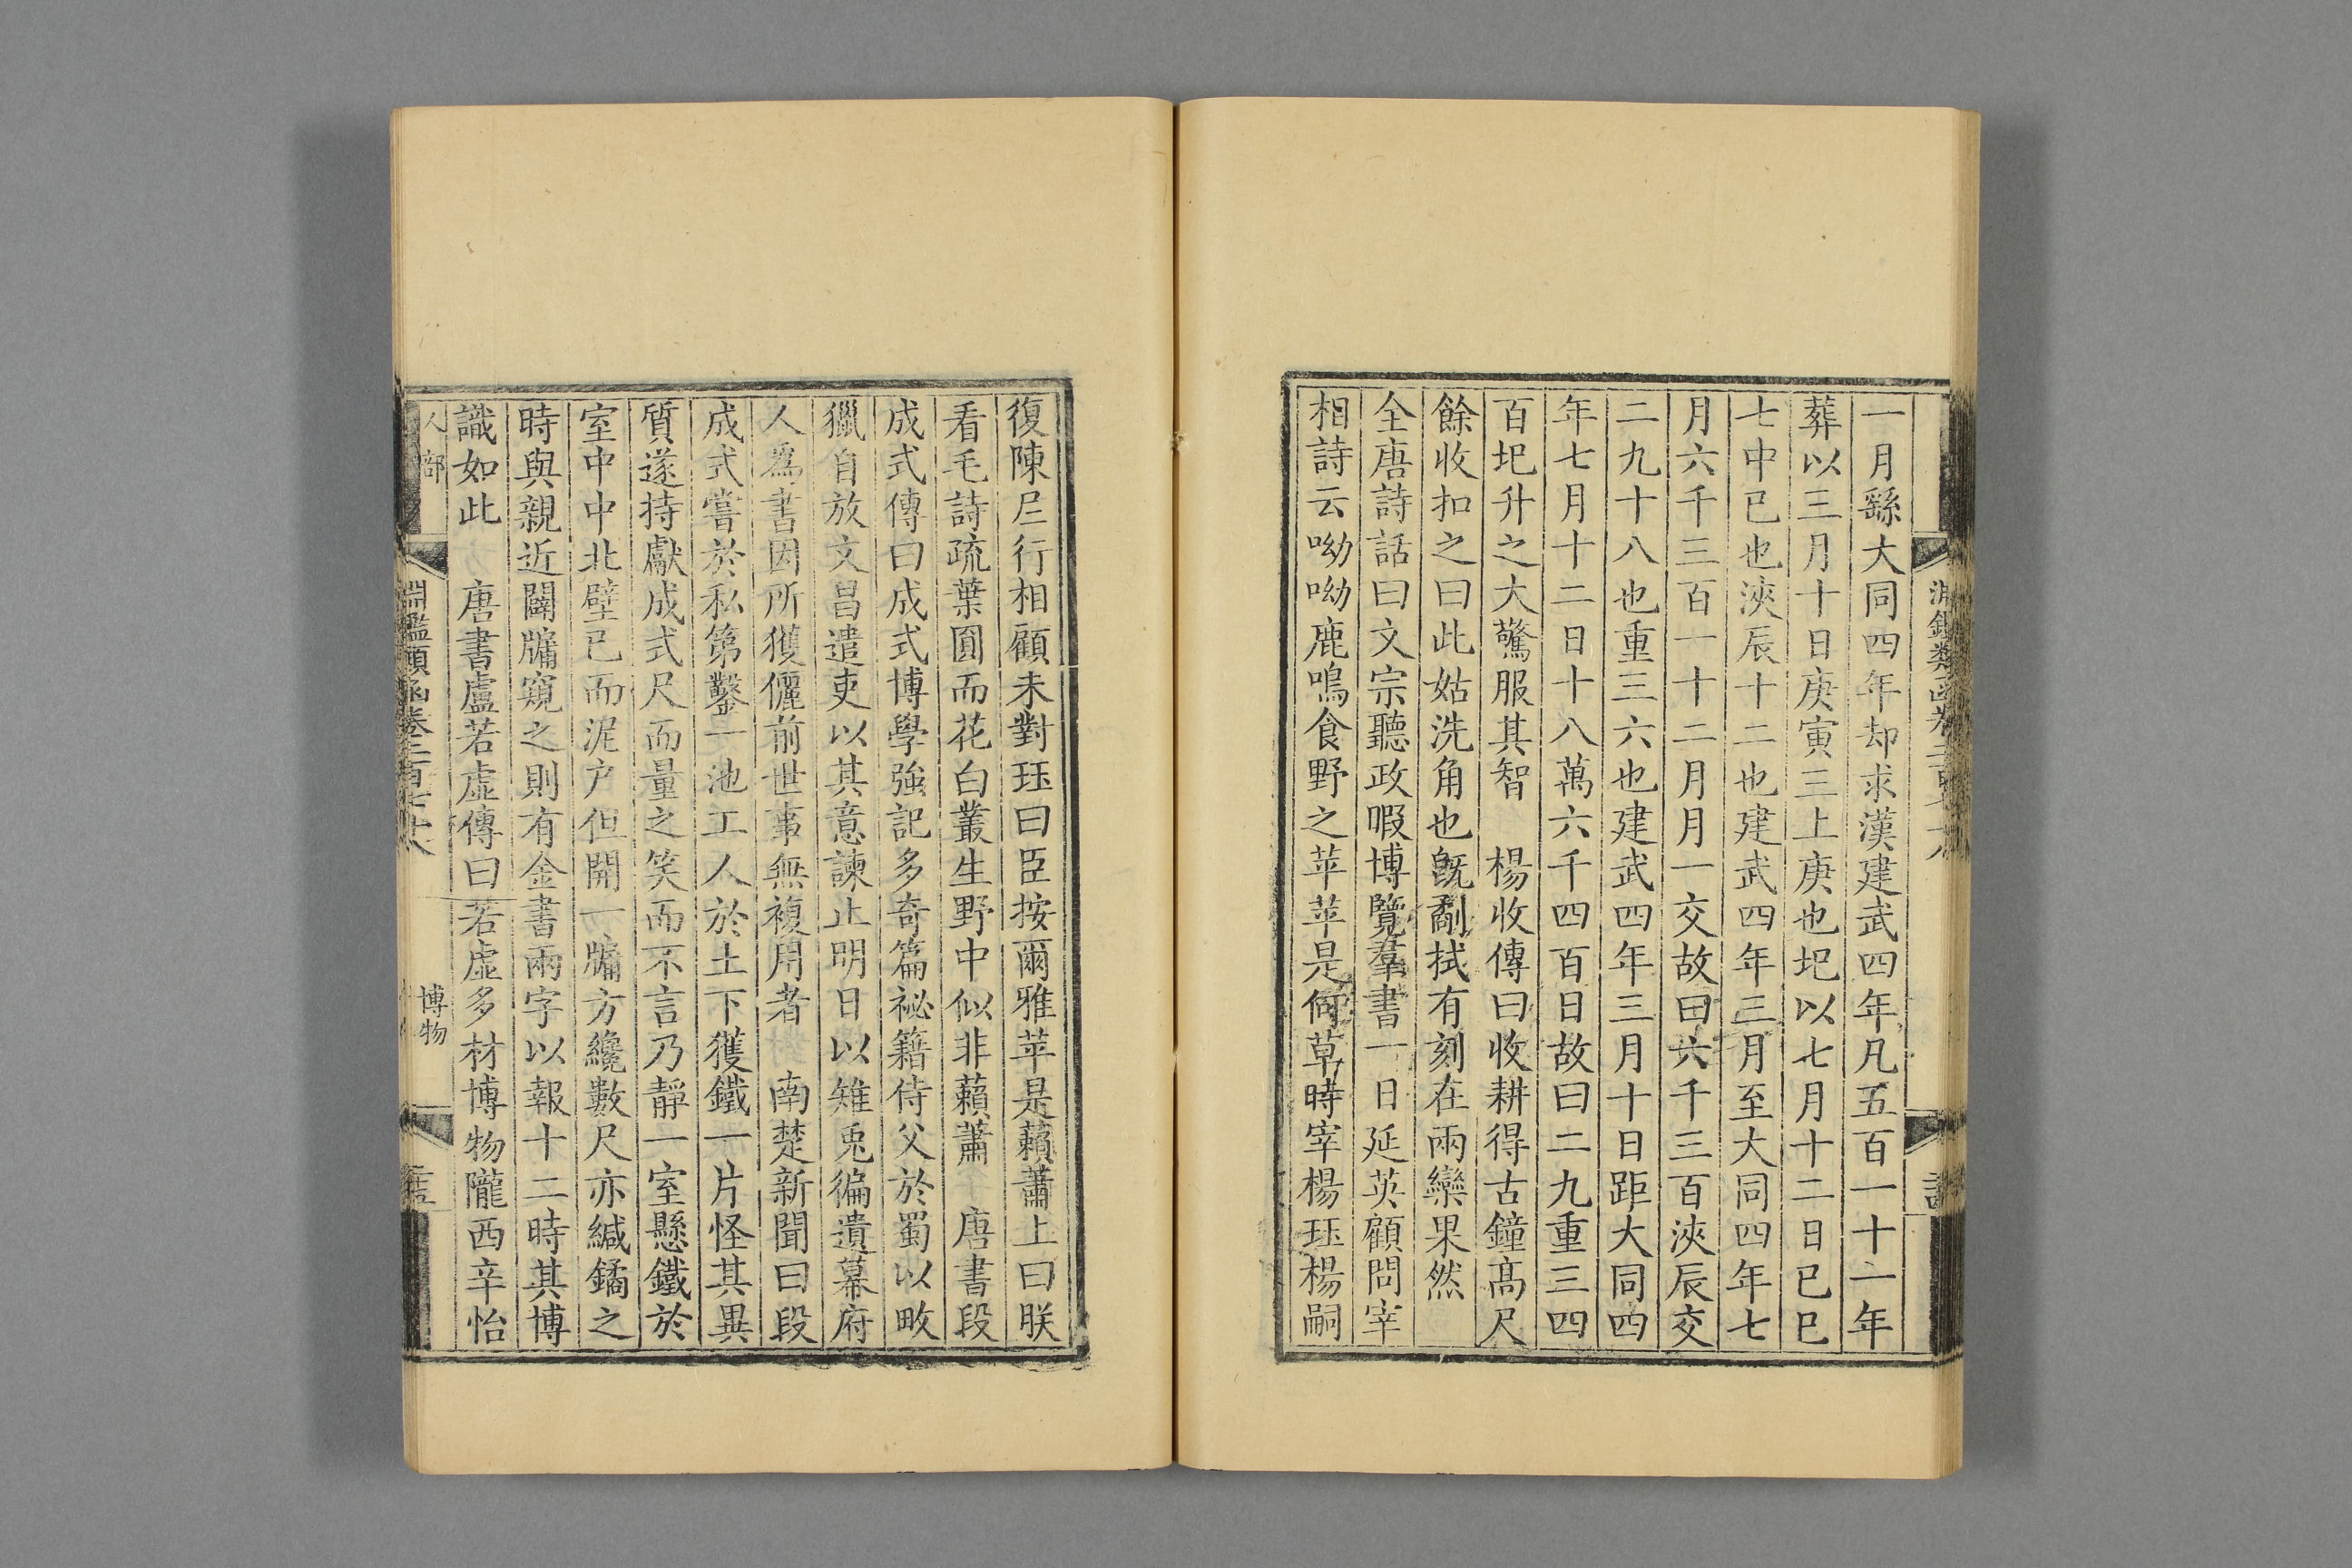 一月繇大同四年却求漢建武四年凡五百一十一年
葬以三月十日庚寅三上庚也圯以七月十二日己巳
七中巳也浹辰十二也建武四年三月至大同四年七
月六千三百一十二月月一交故曰六千三百浹辰交
二九十八也重三六也建武四年三月十日距大同四
年七月十二日十八萬六千四百日故曰二九重三四
百圯升之大驚服其智 楊收傳曰收耕得古鐘高尺
餘收扣之曰此姑洗角也旣劀拭有刻在兩欒果然
全唐詩話曰文宗聽政暇博覽羣書一日延英顧問宰
相詩云呦呦鹿鳴食野之苹苹是何草時宰楊珏楊嗣
復陳𡰱行相顧未對珏曰臣按爾雅苹是藾蕭上曰朕
看毛詩疏葉圓而花白叢生野中似非藾蕭 唐書段
成式傳曰成式博學強記多奇篇祕籍侍父於蜀以畋
獵自放文昌遣吏以其意諫止明日以雉兎徧遺幕府
人爲書因所獲儷前世事無複用者 南楚新聞曰段
成式嘗於私第鑿一池工人於土下獲鐵一片怪其異
質遂持獻成式尺而量之笑而不言乃靜一室懸鐵於
室中中北壁已而泥户但開一牖方纔數尺亦緘鐍之
時與親近闢牖窺之則有金書兩字以報十二時其博
識如此 唐書盧若虛傳曰若虛多材博物隴西辛怡
人部
淵鑑類函卷三百七十八
博物